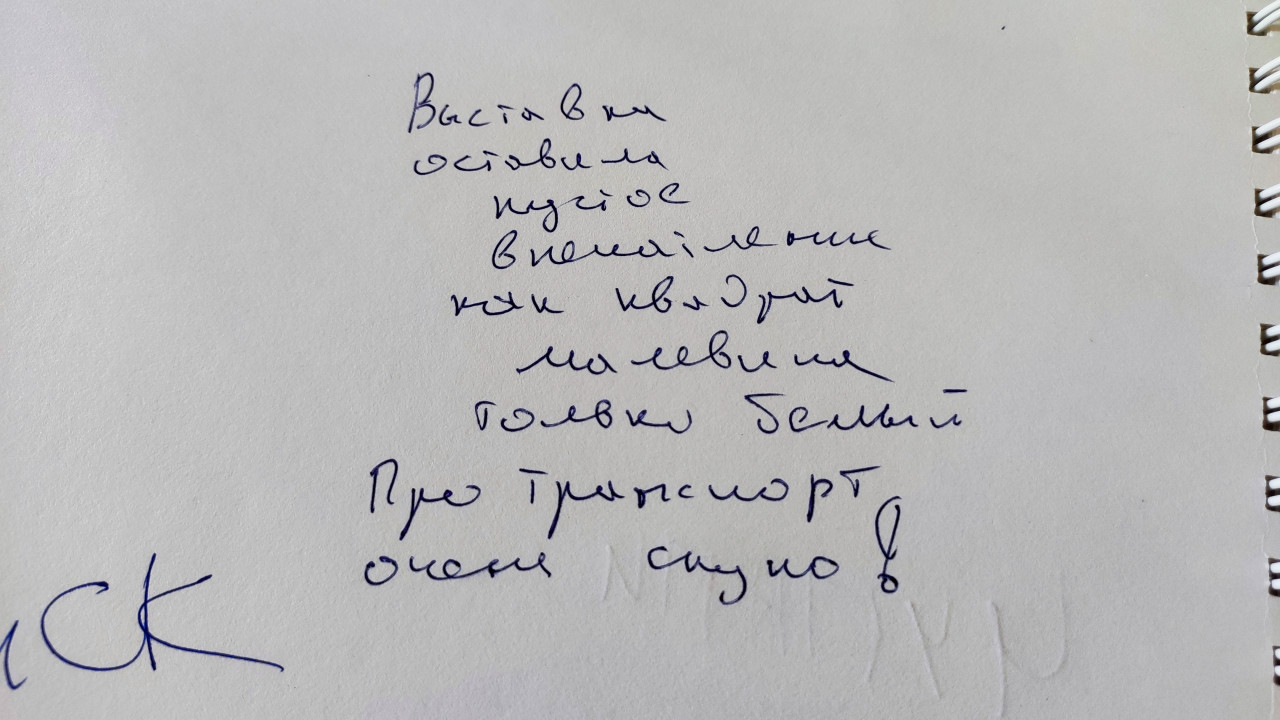 Выставка
оставила
пустое
впечатление
как квадрат
малевича
только белый
Про транспорт
очень скупо!
ск